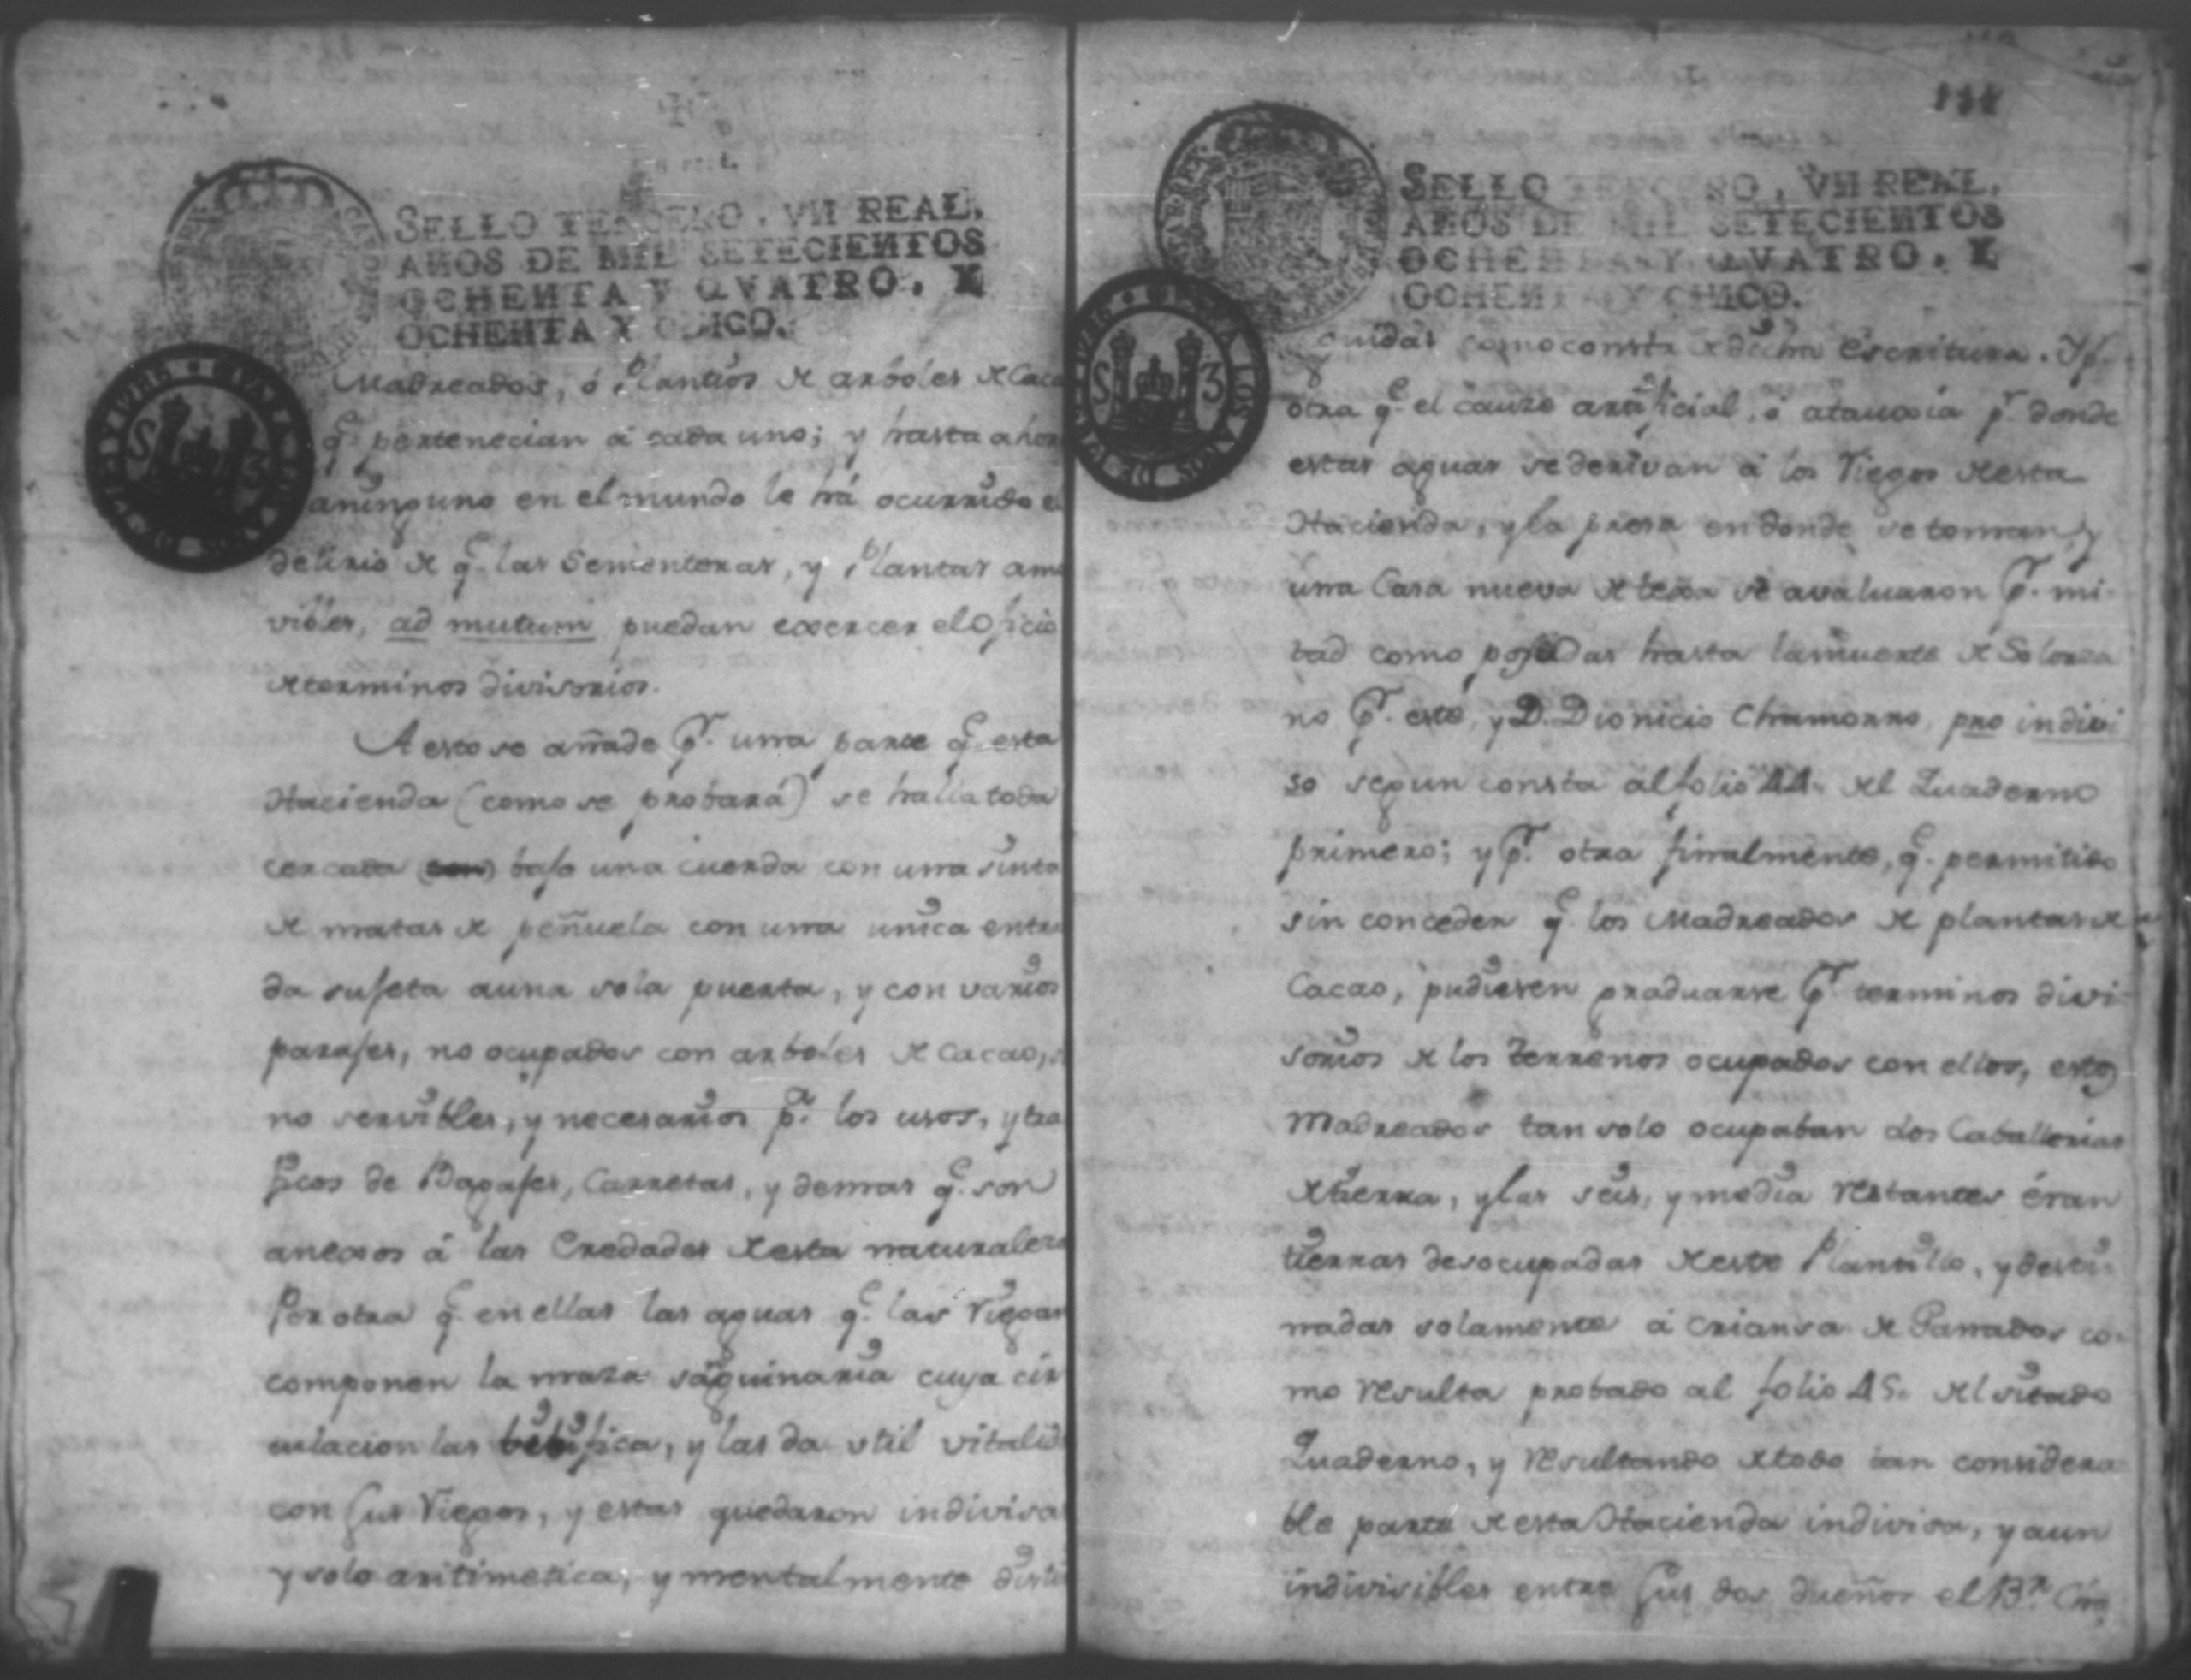 SELLO TERCERO, VN REAL,
AÑOS DE MIL SETECIENTOS
OCHENTA Y QVATRO, Y
OCHENTA Y CINCO.
Madreados, ó Plantíos de arboles de Caca
q.e pertenecian á cada uno; y hasta ahor
aninguno en el mundo le há ocurrido el
delirio de q.e las Sementeras, y Plantas amo
vibles, ad mutum puedan exercer el Oficio
de terminos divisorios.
A esto se añade p.r una parte q.e esta
Hacienda (como se probará) se halla toda
cercada bajo una cuerda con una sinta
de matas de peñuela con una unica entra
da sujeta auna sola puerta, y con varios
parajes, no ocupados con arboles de Cacao, s
no servibles, y necesarios p.a los usos, y tra
ficos de Bagajes, Carretas, y demas q.e son
anexos á las Eredades de esta naturaleza
Por otra q.e en ellas las aguas q.e las riegan
componen la maza sanguinaria cuya cir
culacion las betifica, y las da util vitalid
con sus riegos, y estas quedaron indivisas
y solo aritimetica, y mentalmente distin
111
SELLO TERCERO, VN REAL,
AÑOS DE MIL SETECIENTOS
OCHENTA Y QVATRO, Y
OCHENTA Y CINCO.
guidas como consta de dicha Escritura. Y p.r
otra q.e el cauze artificial, ó ataugia p.r donde
estas aguas se derivan á los riegos de esta
Hacienda, y la presa en donde se toman, y
una Casa nueva de texa se avaluaron p.r mi
tad como poseidas hasta la muerte de Solorza
no p.r este, y D. Dionicio Chamorro, pro indivi
so segun consta al folio 44. del Quaderno
primero; y p.r otra finalmente, q.e permitido
sin conceder q.e los Madreados de plantas de
Cacao, pudiesen graduarse p.r terminos divi
sorios de los terrenos ocupados con ellos, estos
Madreados tan solo ocupaban dos Caballerias
de tierra, y las seis, y media restantes éran
tierras desocupadas de este Plantillo, y desti
nadas solamente á criansa de Ganados co
mo resulta probado al folio 45. del citado
Quaderno, y resultando de todo tan considera
ble parte de esta Hacienda indivisa, y aun
indivisibles entre sus dos dueños el B.r